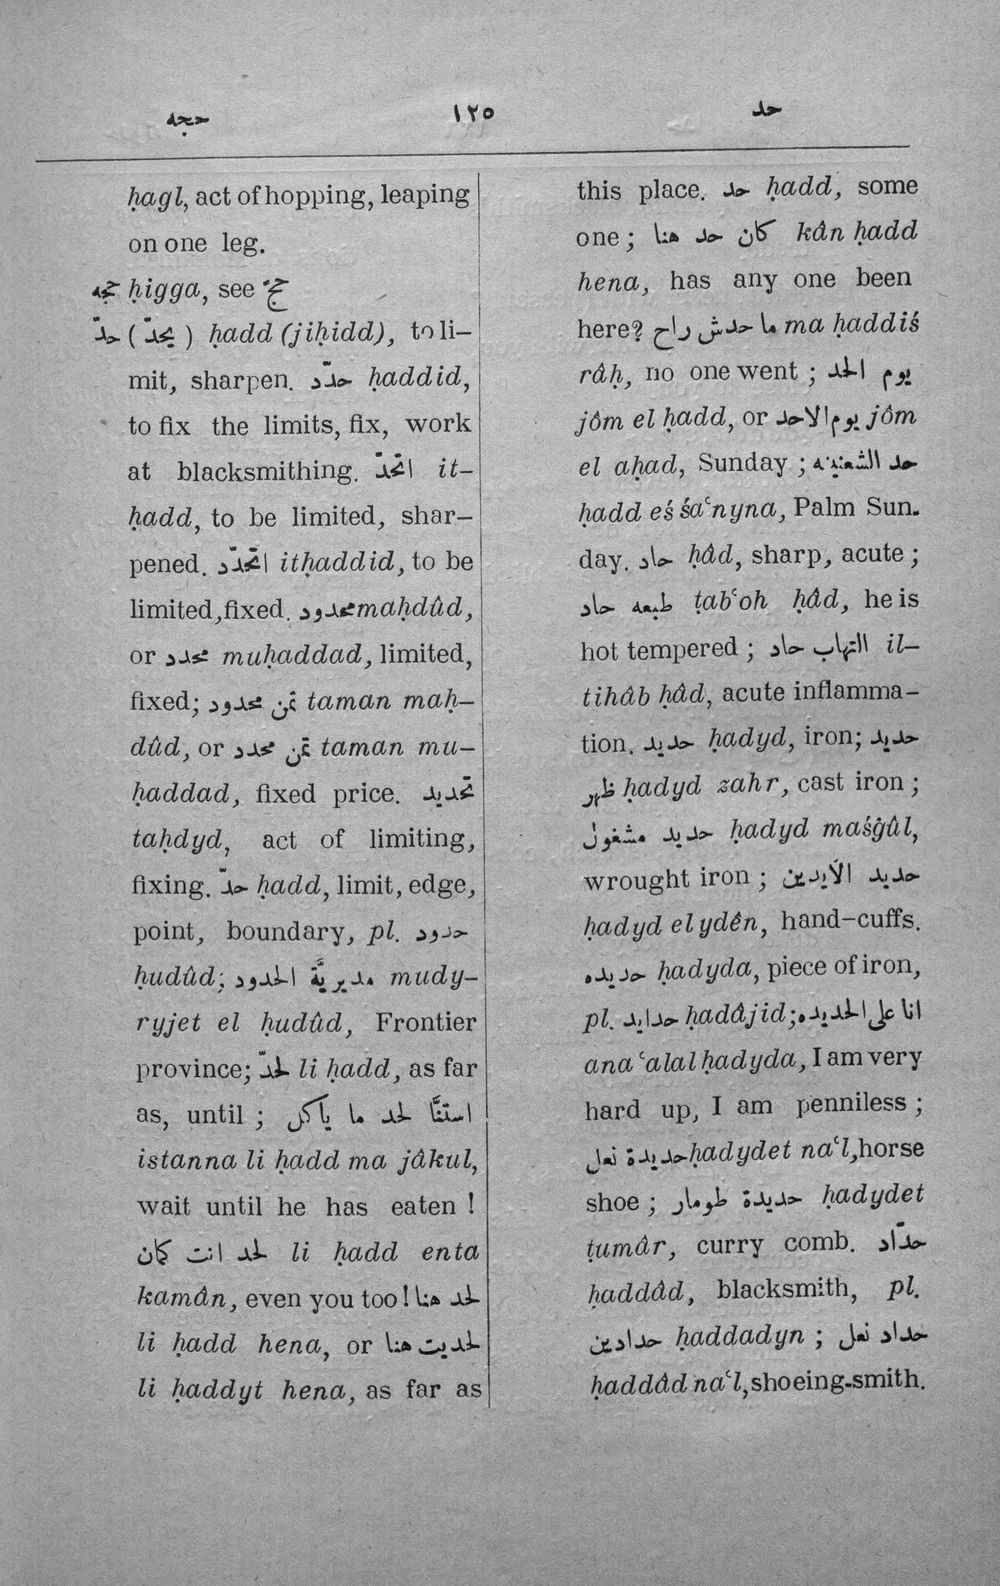 حجه ١٢٥ حد
ḥagl, act of hopping, leaping
on one leg.
حجه ḥigga, see حجّ
حدّ (يحدّ) ḥadd (jiḥidd), to li-
mit, sharpen. حدّد ḥaddid,
to fix the limits, fix, work
at blacksmithing. اتحدّ it-
ḥadd, to be limited, shar-
pened. اتحدّد itḥaddid, to be
limited, fixed. محدود maḥdûd,
or محدد muḥaddad, limited,
fixed; ثمن محدود taman maḥ-
dûd, or ثمن محدد taman mu-
ḥaddad, fixed price. تحديد
taḥdyd, act of limiting,
fixing. حدّ ḥadd, limit, edge,
point, boundary, pl. حدود
ḥudûd; مديريَّة الحدود mudy-
ryjet el ḥudûd, Frontier
province; لحدّ li ḥadd, as far
as, until ; استنَّا لحد ما ياكل
istanna li ḥadd ma jâkul,
wait until he has eaten !
لحد انت كمان li ḥadd enta
kamân, even you too! لحد هنا
li ḥadd hena, or لحديت هنا
li ḥaddyt hena, as far as
this place. حد ḥadd, some
one ; كان حد هنا kân ḥadd
hena, has any one been
here? ما حدش راح ma ḥaddiś
râḥ, no one went ; يوم الحد
jôm el ḥadd, or يوم الاحد jôm
el aḥad, Sunday ; حد الشعنينه
ḥadd eś śaʿnyna, Palm Sun-
day. حاد ḥâd, sharp, acute ;
طبعه حاد ṭabʿoh ḥâd, he is
hot tempered ; التهاب حاد il-
tihâb ḥâd, acute inflamma-
tion. حديد ḥadyd, iron; حديد
ظهر ḥadyd zahr, cast iron ;
حديد مشغول ḥadyd maśġûl,
wrought iron ; حديد الايدين
ḥadyd el ydên, hand-cuffs.
حديده ḥadyda, piece of iron,
pl. حدايد ḥadâjid; انا على الحديده
ana ʿalal ḥadyda, I am very
hard up, I am penniless ;
حديدة نعل ḥadydet naʿl, horse
shoe ; حديدة طومار ḥadydet
ṭumâr, curry comb. حدّاد
ḥaddâd, blacksmith, pl.
حدادين ḥaddadyn ; حداد نعل
ḥaddâd naʿl, shoeing-smith.